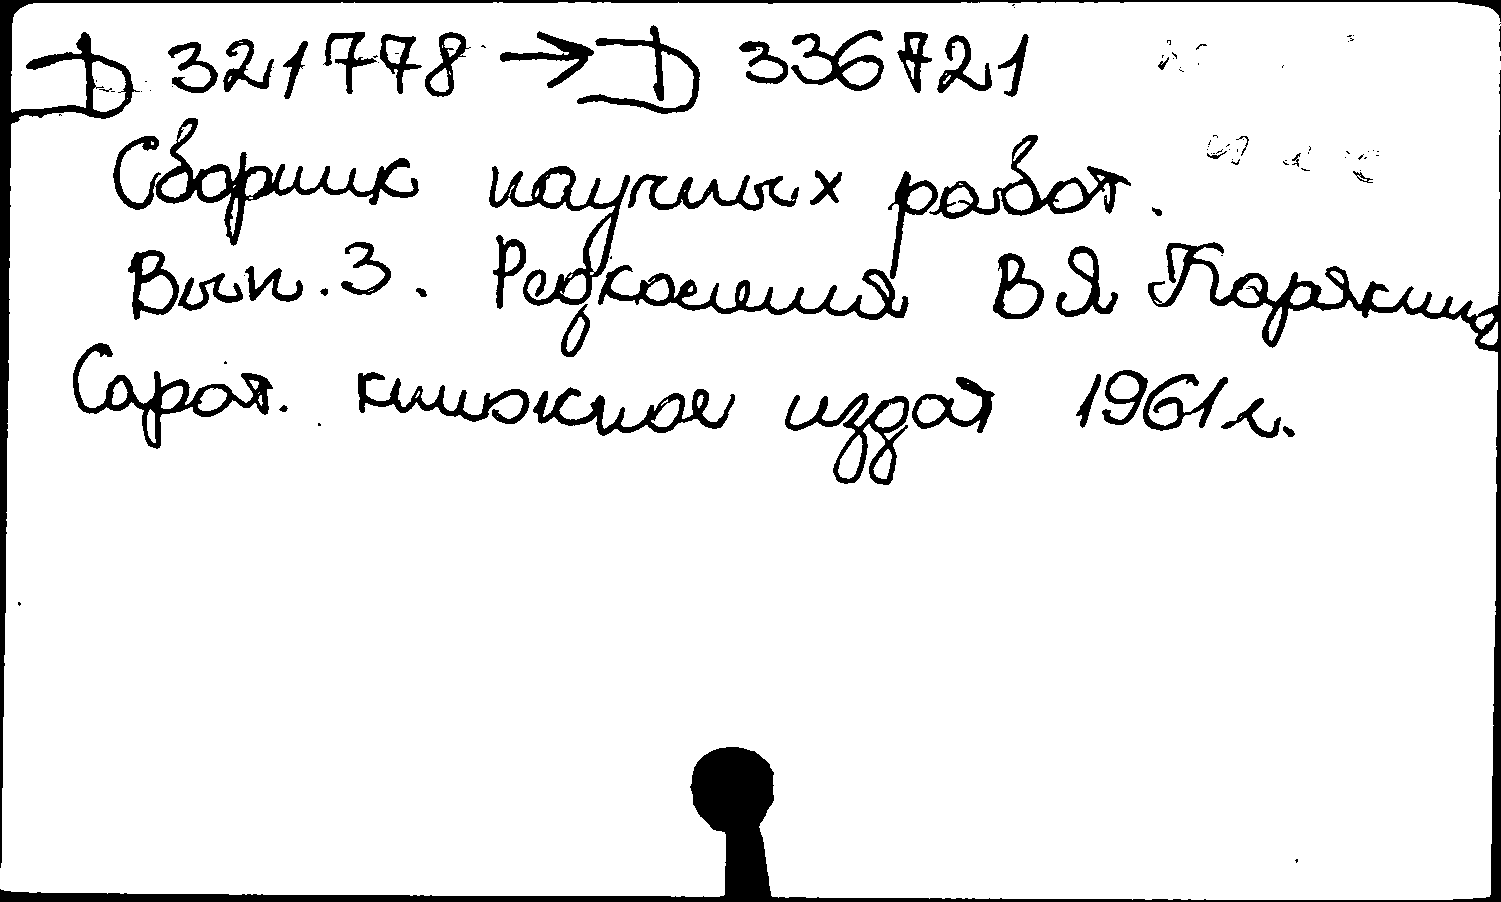 D 321778 → D 336721
Сборник научных работ.
Вып. 3. Редколлегия В Я Карякина
Сарат. книжное издат 1961 г.